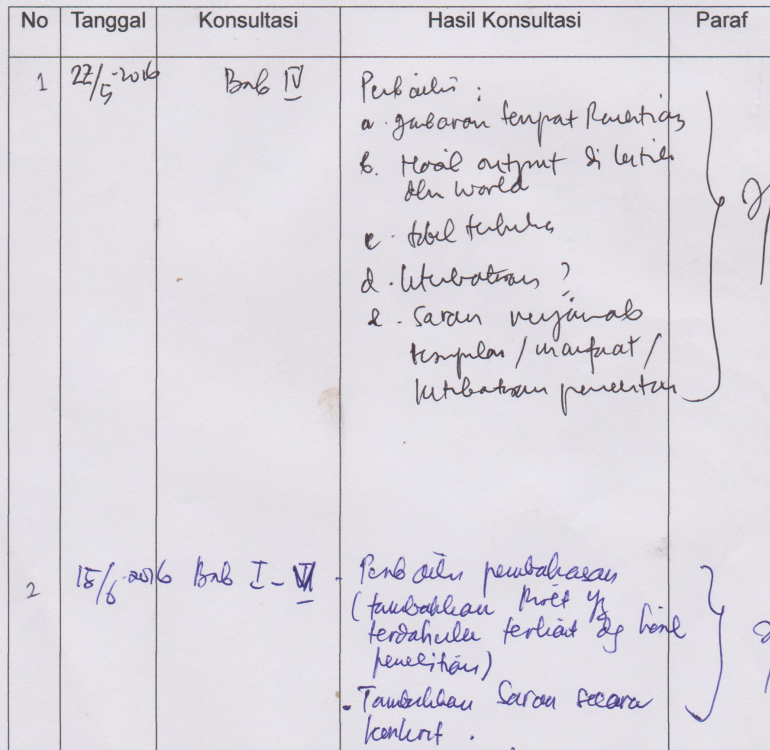 No Tanggal Konsultasi Hasil Konsultasi Paraf
1 27/5-2016 Bab IV Perbaiki :
a. gambaran tempat Penelitian
b. Hasil output di
world
c. tabel terbuka
d. keterbatasan ?
e. Saran menjawab
kesimpulan / manfaat /
keterbatasan penelitian
2 15/6-2016 Bab I - VI - Perbaiki pembahasan
(tambahkan yg
terdahulu terkait dg hasil
penelitian)
- Tambahkan Saran secara
konkrit .